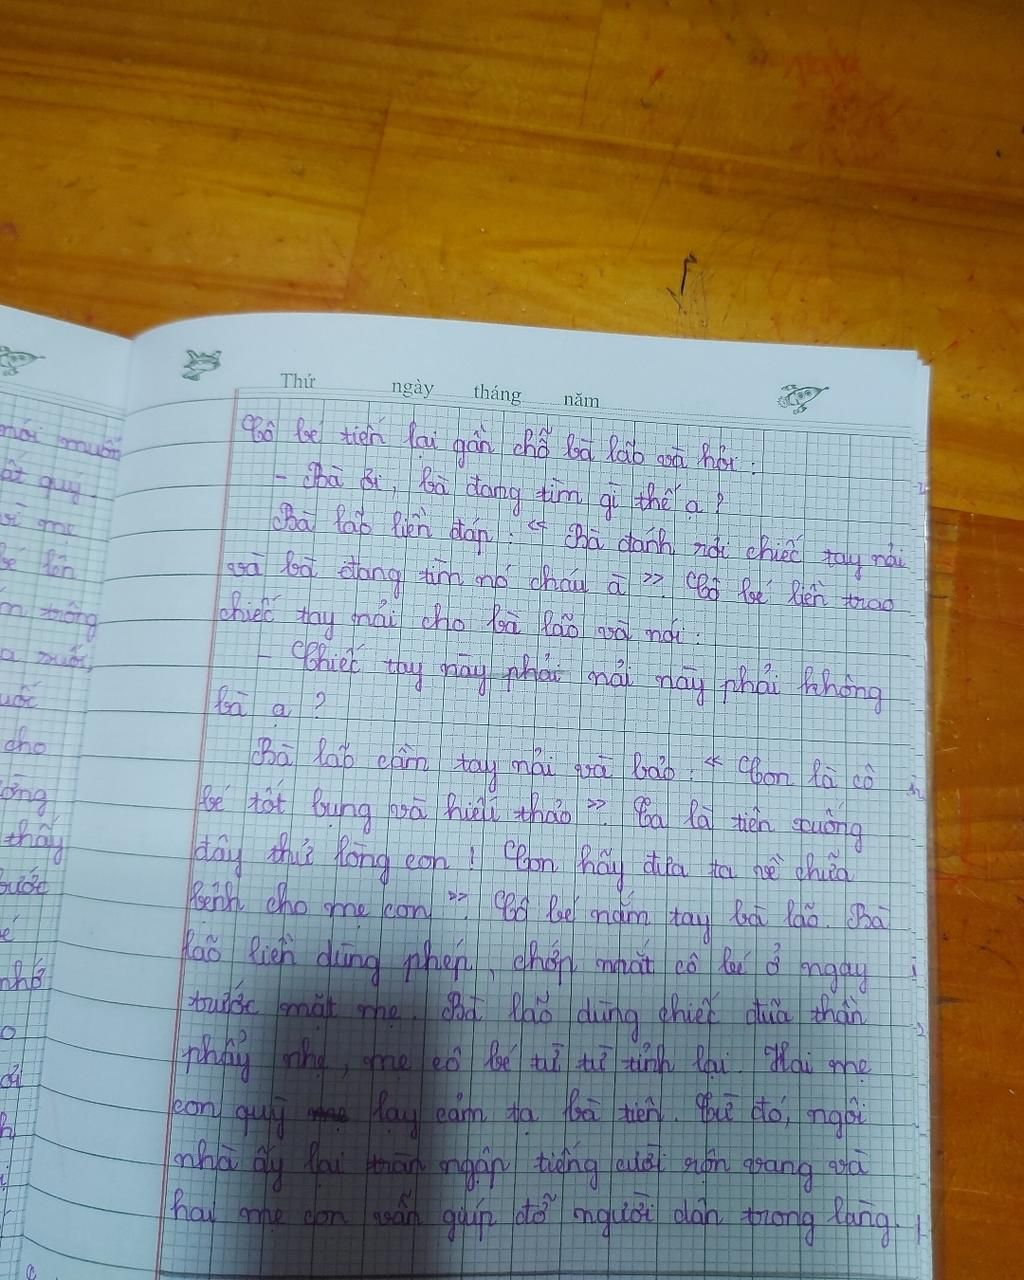 Thứ ngày tháng năm
Cô bé tiến lại gần chỗ bà lão và hỏi:
- Bà ơi, bà đang tìm gì thế ạ?
Bà lão liền đáp: "Bà đánh rơi chiếc tay nải
và bà đang tìm nó cháu à". Cô bé liền trao
chiếc tay nải cho bà lão và nói:
- Chiếc tay này phải nải này phải không
bà ạ?
Bà lão cầm tay nải và bảo: "Con là cô
bé tốt bụng và hiếu thảo". Ta là tiên xuống
đây thử lòng con! Con hãy đưa ta về chữa
bệnh cho mẹ con". Cô bé nắm tay bà lão. Bà
lão liền dùng phép, chớp mắt cô bé ở ngay
trước mặt mẹ. Bà lão dùng chiếc đũa thần
phẩy nhẹ, mẹ cô bé từ từ tỉnh lại. Hai mẹ
con quỳ lạy cảm tạ bà tiên. Từ đó, ngôi
nhà ấy lại tràn ngập tiếng cười rộn vang và
hai mẹ con vẫn giúp đỡ người dân trong làng.
quý
mẹ
bé lên
trông
cho
thấy
bước
nhớ